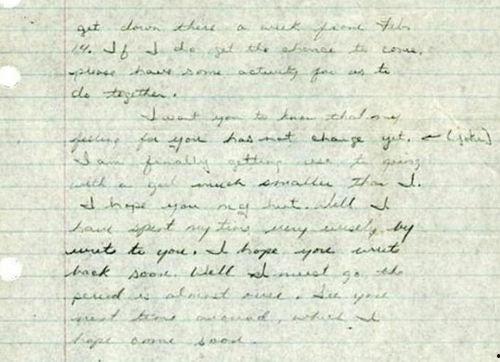 get down there a week from Feb
14. If I do get the chance to come,
please have some activity for us to
do together.
I want you to know that my
feeling for you has not change yet. ← (joke)
I am finally getting use to going
with a girl much smaller than I.
I hope you my hint. Well I
have spent my time very wisely by
write to you. I hope you write
back soon. Well I must go the
period is almost over. See you
next time around, which I
hope come soon.